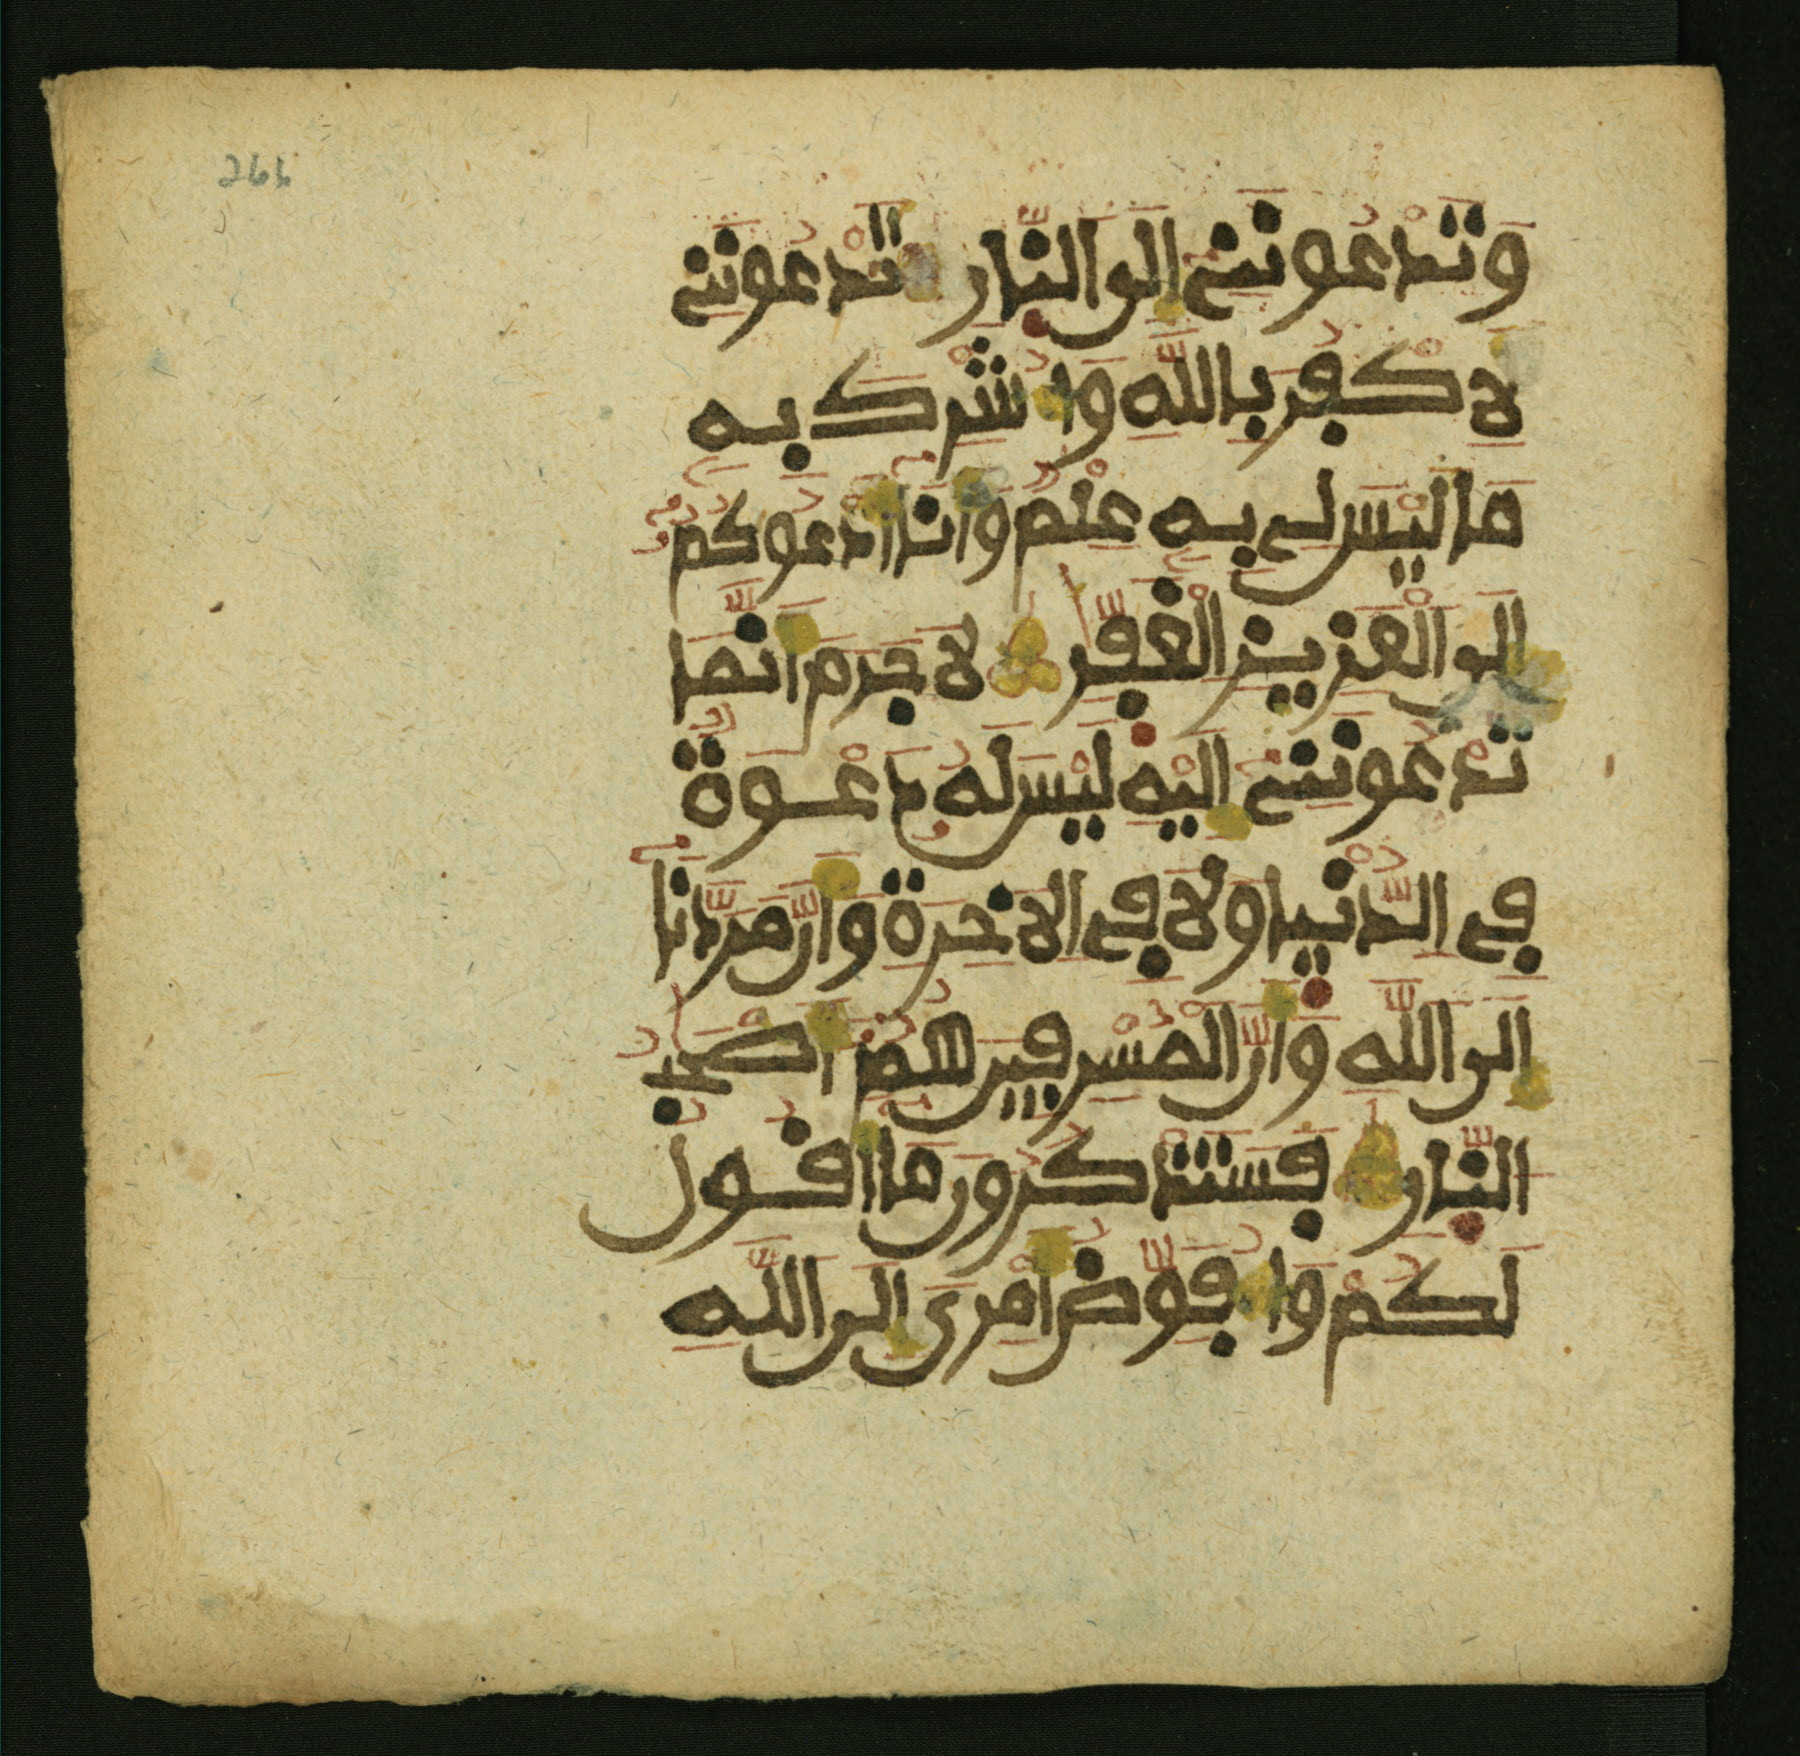 266
وَتَدْعُونَنِي إِلَى النَّارِ تَدْعُونَنِي
لِأَكْفُرَ بِاللَّهِ وَأُشْرِكَ بِهِ
مَا لَيْسَ لِي بِهِ عِلْمٌ وَأَنَا أَدْعُوكُمْ
إِلَى الْعَزِيزِ الْغَفَّٰرِ لَا جَرَمَ أَنَّمَا
تَدْعُونَنِي إِلَيْهِ لَيْسَ لَهُ دَعْوَةٌ
فِي الدُّنْيَا وَلَا فِي الْأَخِرَةِ وَأَنَّ مَرَدَّنَا
إِلَى اللَّهِ وَأَنَّ الْمُسْرِفِينَ هُمُ أَصْحَٰبُ
النَّارِ فَسَتَذْكُرُونَ مَا أَقُولُ
لَكُمْ وَأُفَوِّضُ أَمْرِي إِلَى اللَّهِ